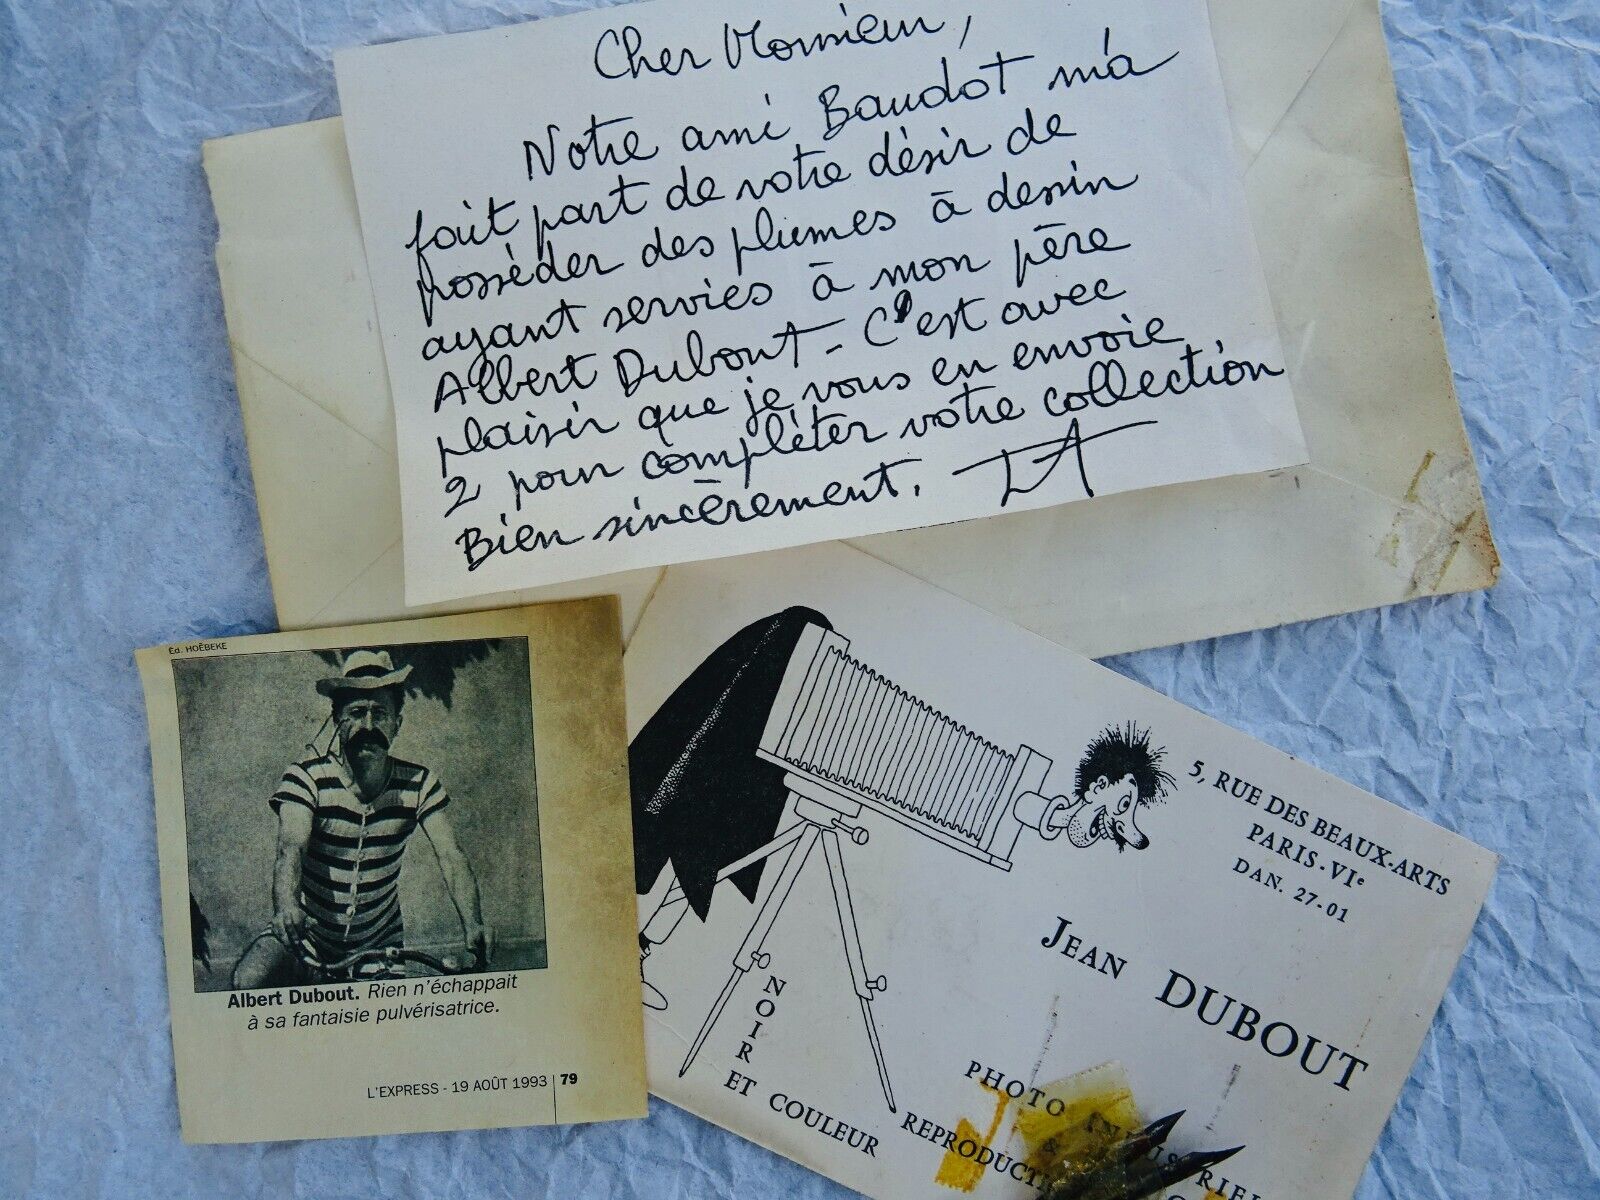 Cher Monsieur,
Notre ami Baudot m'a
fait part de votre désir de
posséder des plumes à dessin
ayant servies à mon père
Albert Dubout - C'est avec
plaisir que je vous en envoie
2 pour compléter votre collection
Bien sincèrement.
Éd. HOËBEKE
Albert Dubout. Rien n'échappait
à sa fantaisie pulvérisatrice.
L'EXPRESS - 19 AOÛT 1993 79
5, RUE DES BEAUX-ARTS
PARIS-VIe
DAN. 27-01
JEAN DUBOUT
PHOTO
&
REPRODUCTI
NOIR
ET COULEUR